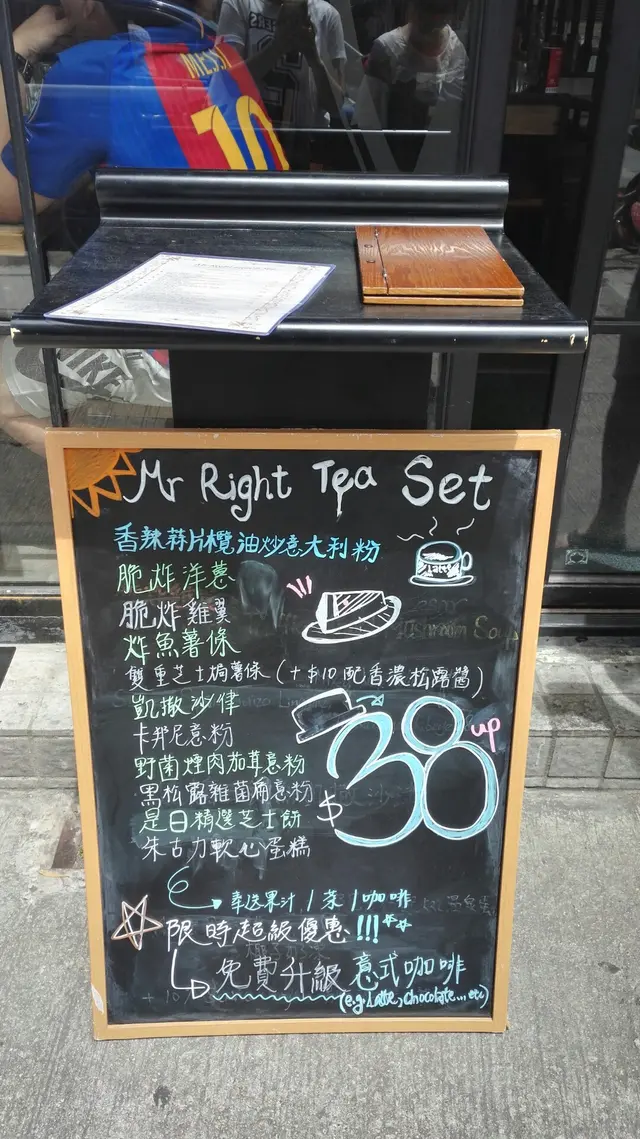 MESSI
10
NIKE
Mr Right Tea Set
香辣蒜片欖油炒意大利粉
脆炸洋蔥
脆炸雞翼
炸魚薯條
雙重芝士焗薯條 (+$10 配香濃松露醬)
凱撒沙律
卡邦尼意粉
野菌煙肉茄茸意粉
黑松露雜菌扁意粉
是日精選芝士餅
朱古力軟心蛋糕
$38 up
奉送果汁/茶/咖啡
限時超級優惠!!!
免費升級意式咖啡
(e.g. Latte, Chocolate...etc)